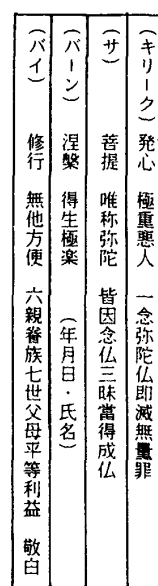 (キリーク) 発心 極重悪人 一念弥陀仏即滅無量罪
(サ) 菩提 唯称弥陀 皆因念仏三昧當得成仏
(バーン) 涅槃 得生極楽 (年月日・氏名)
(バイ) 修行 無他方便 六親眷族七世父母平等利益 敬白